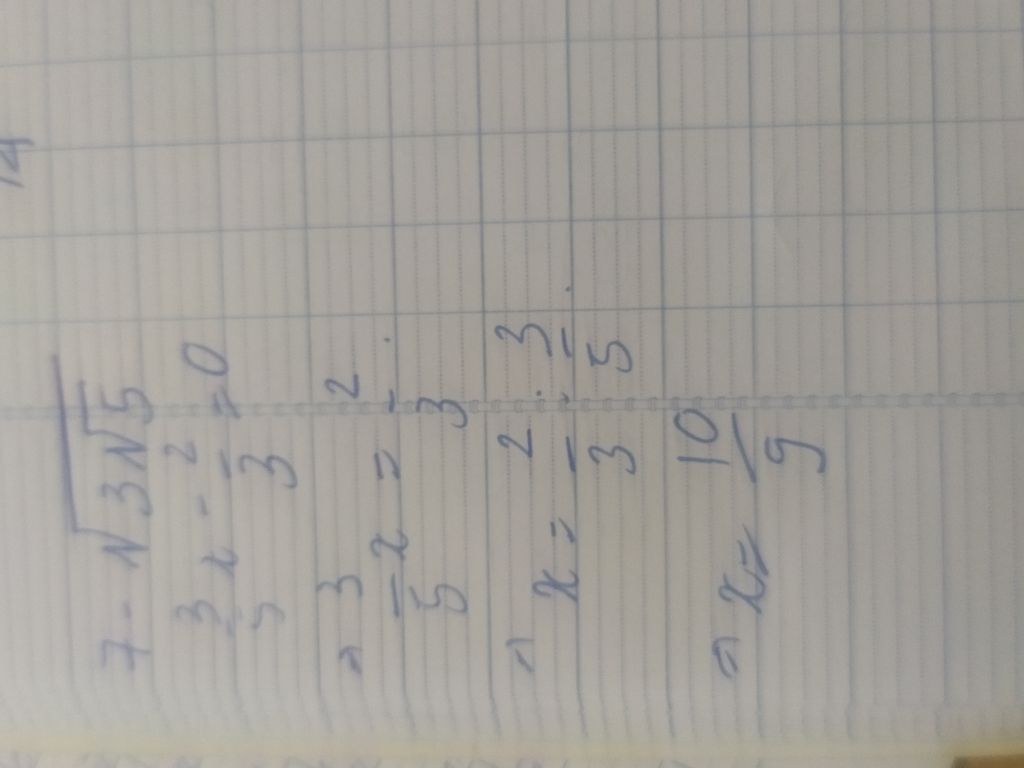 14
7 - √3√5
3/5 x - 2/3 = 0
⇒ 3/5 x = 2/3
⇒ x = 2/3 : 3/5
⇒ x = 10/9